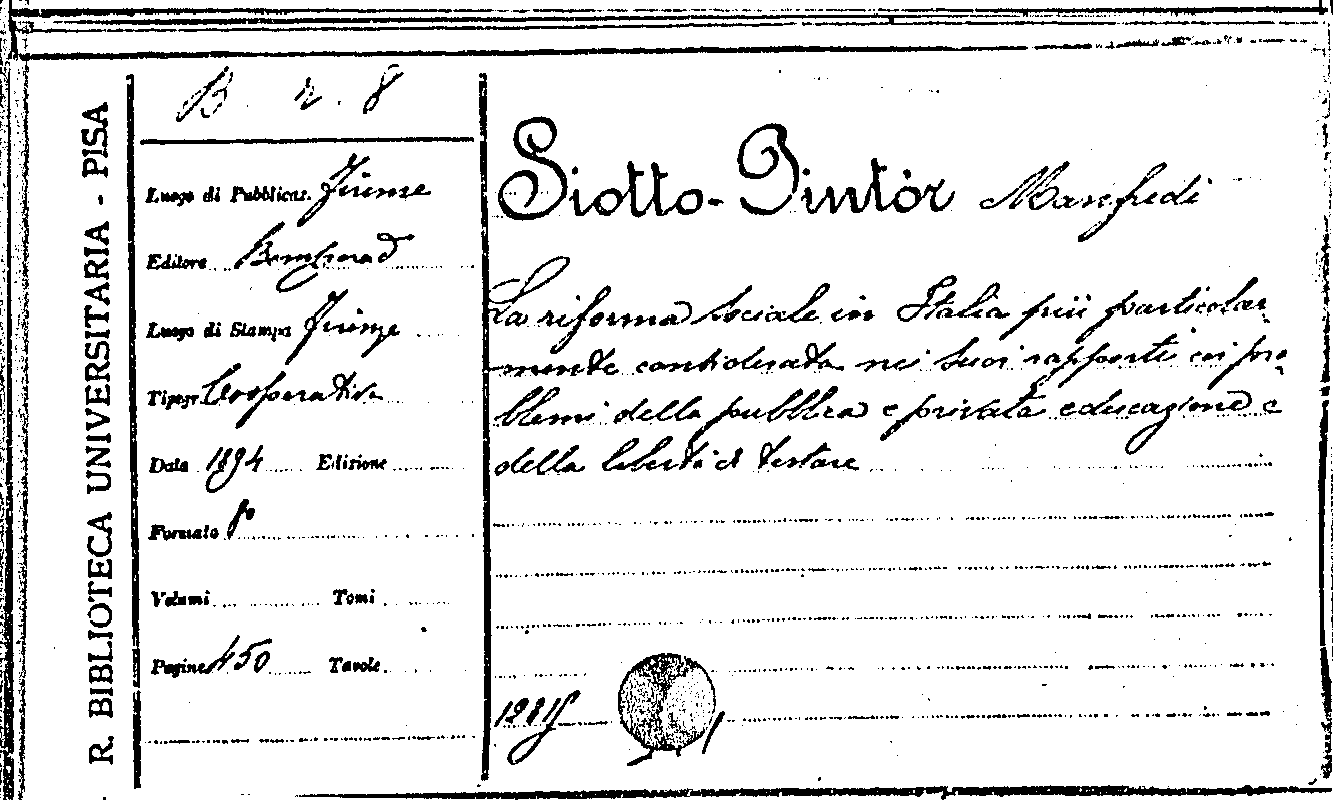 R. BIBLIOTECA UNIVERSITARIA - PISA
B. r. 8
Luogo di Pubblicaz. Firenze
Editore Bemporad
Luogo di Stampa Firenze
Tipogr. Cooperativa
Data 1894 Edizione
Formato 8°
Volumi Tomi
Pagine 450 Tavole
Siotto-Pintòr Manfredi
La riforma sociale in Italia più particolar-
mente considerata nei suoi rapporti coi pro-
blemi della pubblica e privata educazione e
della libertà di testare